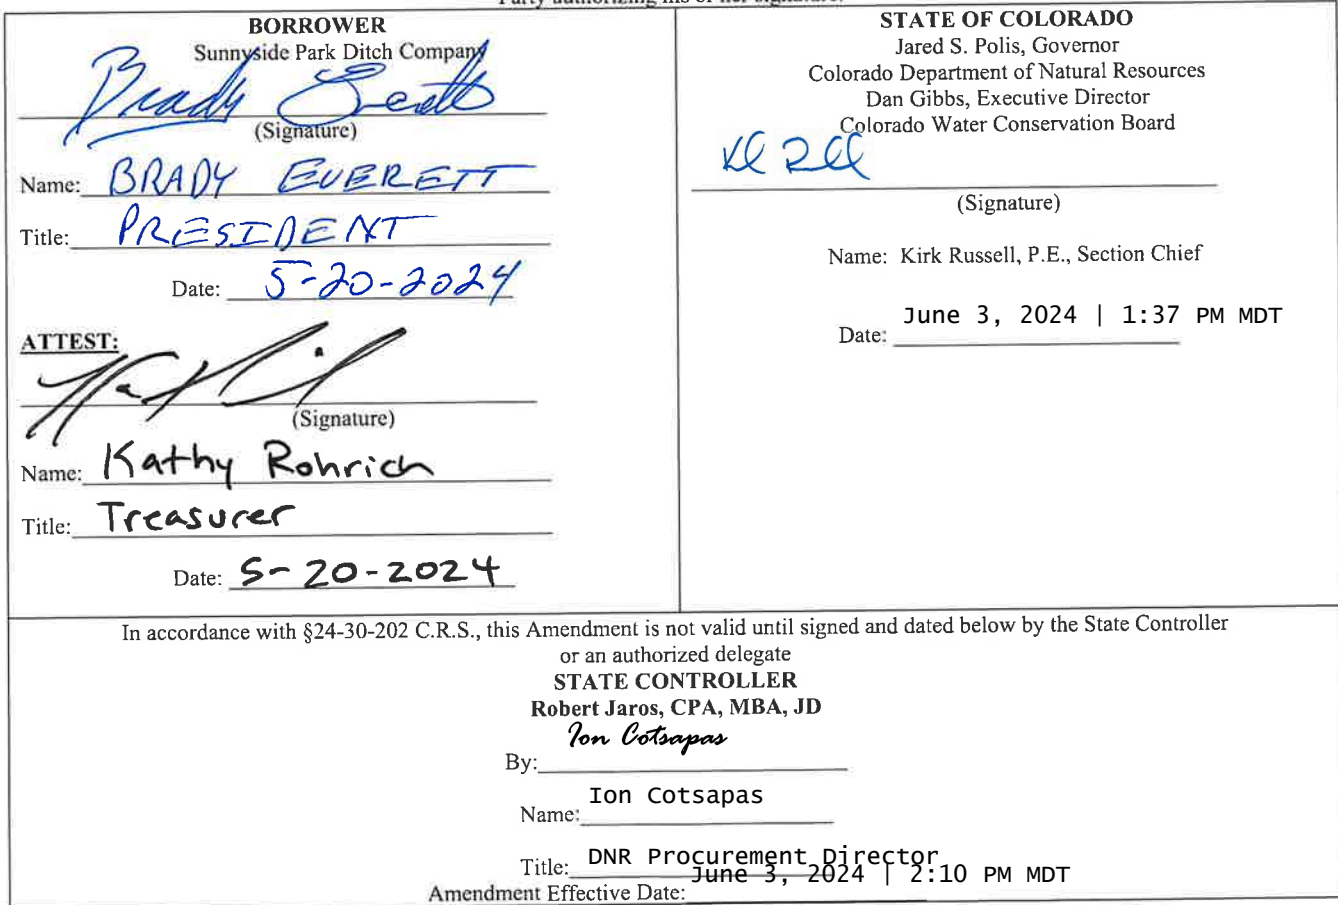 Party authorizing his or her signature.
BORROWER
Sunnyside Park Ditch Company
Brady Everett
(Signature)
Name: BRADY EVERETT
Title: PRESIDENT
Date: 5-20-2024
ATTEST:
(Signature)
Name: Kathy Rohrich
Title: Treasurer
Date: 5-20-2024
STATE OF COLORADO
Jared S. Polis, Governor
Colorado Department of Natural Resources
Dan Gibbs, Executive Director
Colorado Water Conservation Board
(Signature)
Name: Kirk Russell, P.E., Section Chief
Date: June 3, 2024 | 1:37 PM MDT
In accordance with §24-30-202 C.R.S., this Amendment is not valid until signed and dated below by the State Controller
or an authorized delegate
STATE CONTROLLER
Robert Jaros, CPA, MBA, JD
By: Ion Cotsapas
Name: Ion Cotsapas
Title: DNR Procurement Director
Amendment Effective Date: June 3, 2024 | 2:10 PM MDT